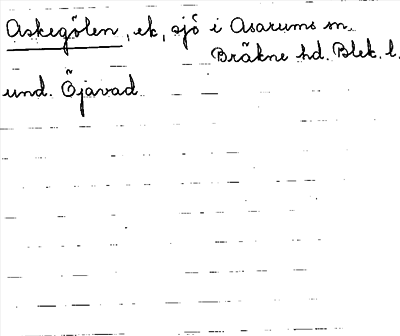 Askegölen, ek, sjö i Asarums sn.
Bräkne hd. Blek. l.
und. Öjavad